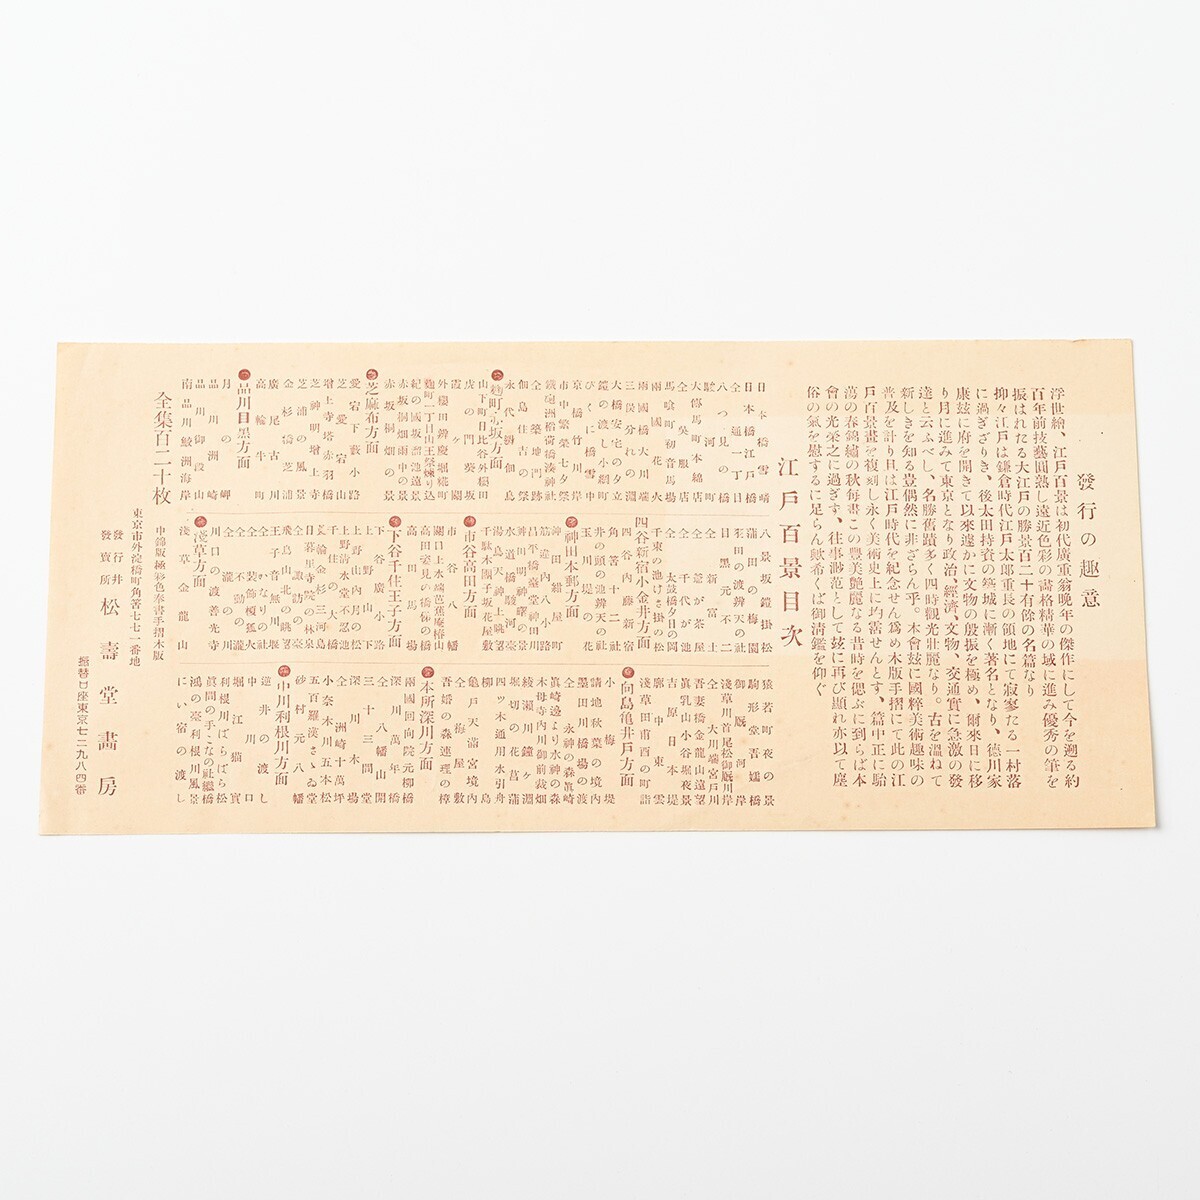 發行の趣意
浮世繪、江戸百景は初代廣重翁晩年の傑作にして今を遡る約
百年前技藝圓熟し遠近色彩の講格精華の域に進み優秀の筆を
振はれたる大江戸の勝景百二十有餘の名篇なり
抑々江戸は鎌倉時代江戸太郎重長の領地にて寂寥たる一村落
に過ぎざりき、後太田持資の築城に漸く著名となり、德川家
康玆に府を開きて以來遽かに文物の殷振を極め、爾來日に移
り月に進みて東京となり政治、經濟、文物、交通實に急激の發
達と云ふべし、名勝舊蹟多く四時觀光壯麗なり。古を溫ねて
新しきを知る豈偶然に非ざらん乎。本會玆に國粹美術趣味の
普及を計り且は江戸時代を紀念せん爲め木版手摺にて此の江
戸百景畫を複刻し永く美術史上に均霑せんとす、篇中正に駘
蕩の春錦繡の秋每書この豐美艶麗なる昔時を偲ぶに到らば本
會の光榮之に過ぎず、往事渺茫として玆に再び顯れ亦以て座
俗の氣を慰するに足らん歟希くば御淸鑑を仰ぐ
江戸百景目次
日本橋雪晴
日本橋江戸橋
全通一丁目
八つ見の橋
駿河町
大傳馬町木綿店
全吳服店
馬喰町初音馬場
兩國花火
兩國橋大川端
三俣分れの淵
大橋安宅の夕立
鎧の渡し小綱町
びくに橋雪中
京橋竹川岸
市中繁榮七夕祭
鐵砲洲稻荷橋湊神社
全築地門跡
佃島住吉の祭
永代橋佃島
麹町赤坂方面
山下町日比谷外櫻田
虎の門葵坂
霞ヶ關
外櫻田辨慶堀糀町
麹町一丁目山王祭練り込
紀の國坂溜池遠景
赤坂桐畑雨中の景
赤坂桐畑
芝麻布方面
愛宕下藪小路
芝愛宕山
增上寺塔赤羽橋
芝神明增上寺
芝浦の風景
金杉橋芝浦
廣尾古川
高輪牛町
品川目黑方面
月の岬
品川洲崎
品川御殿山
南品川鮫洲海岸
八景坂鎧掛松
蒲田の梅園
羽田の渡辨天の社
目黑元不二
全新富士
全爺が茶屋
全千代が池
全太鼓橋夕日の岡
千束の池けさ掛の松
四谷新宿小金井方面
四谷内藤新宿
角筈十二社
井の頭の池辨天の社
玉川の花
神田本郷方面
神田紺屋町
筋違内八ッ小路
昌平橋聖堂神田川
神田明神曙の景
水道橋駿河臺
湯島天神坂上眺望
千駄木團子坂花屋敷
市谷高田方面
市谷八幡
關口上水端芭蕉庵椿山
高田姿見の橋俤の橋
高田馬場
下谷千住王子方面
下谷廣小路
上野山下
上野山内月の松
上野淸水堂不忍池
千住の大橋
蓑輪金杉三河島
日暮里寺院の林泉
全諏訪の臺
飛鳥山北の眺望
王子音無川堰
全いなりの社
全裝飾榎狐火
全瀧の川
全不動の瀧
川口の渡善光寺
淺草方面
淺草金龍山
猿若町夜の景
駒形堂吾嬬橋
御厩河岸
淺草川首尾松御厩川岸
全大川端宮戸川
吾妻橋金龍山遠望
眞乳山小谷堀夜景
吉原日本堤
廓中東雲
淺草田甫酉の町詣
向島亀井戸方面
小梅堤
請地秋葉の境内
墨田川橋場の渡
全永神の森眞崎
眞崎邊より水神の森
木母寺内川御前栽畑
綾瀨川鐘ヶ淵
堀切の花菖蒲
四ッ木通用水引舟
柳島
亀戸天滿宮境内
全梅屋敷
吾嬬の森連理の樟
本所深川方面
兩國回向院元柳橋
深川萬年橋
全八幡山開
三十三間堂
深川木場
全洲崎十萬坪
小奈木川五本松
五百羅漢さゞゐ堂
砂村元八幡
中川利根川方面
逆井の渡し
中川口
堀江猫實
利根川ばらばら松
眞間の手こなの社繼橋
鴻の臺利根川風景
にい宿の渡し
全集百二十枚
中錦版極彩色奉書手摺木版
東京市外淀橋町角筈七七一番地
發行所 井
發賣所 松壽堂畵房
振替口座東京七二九八四番